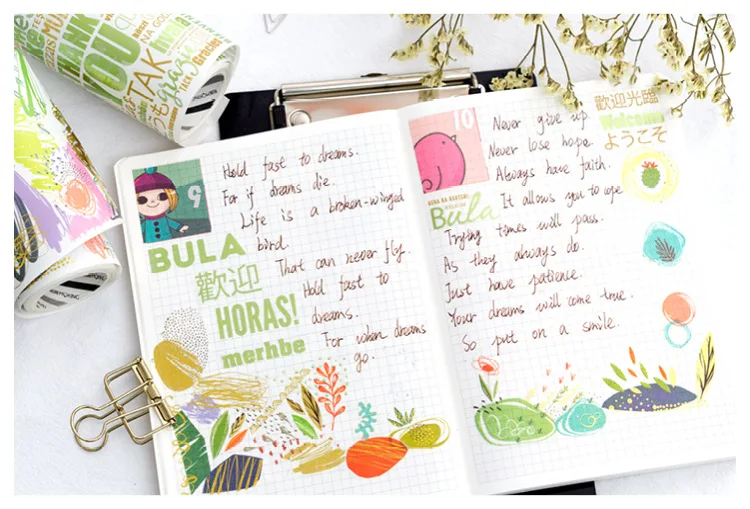 THANK
YOU
TAK
Gracias
9
Hold fast to dreams.
For if dreams die.
Life is a broken-winged
bird.
That can never fly.
Hold fast to
dreams.
For when dreams
go.
BULA
歡迎
HORAS!
merhbe
10
Never give up.
Never lose hope.
Always have faith.
It allows you to cope
Trying times will pass.
As they always do.
Just have patience.
Your dreams will come true.
So put on a smile.
Bula
歡迎光臨
Welcome
ようこそ